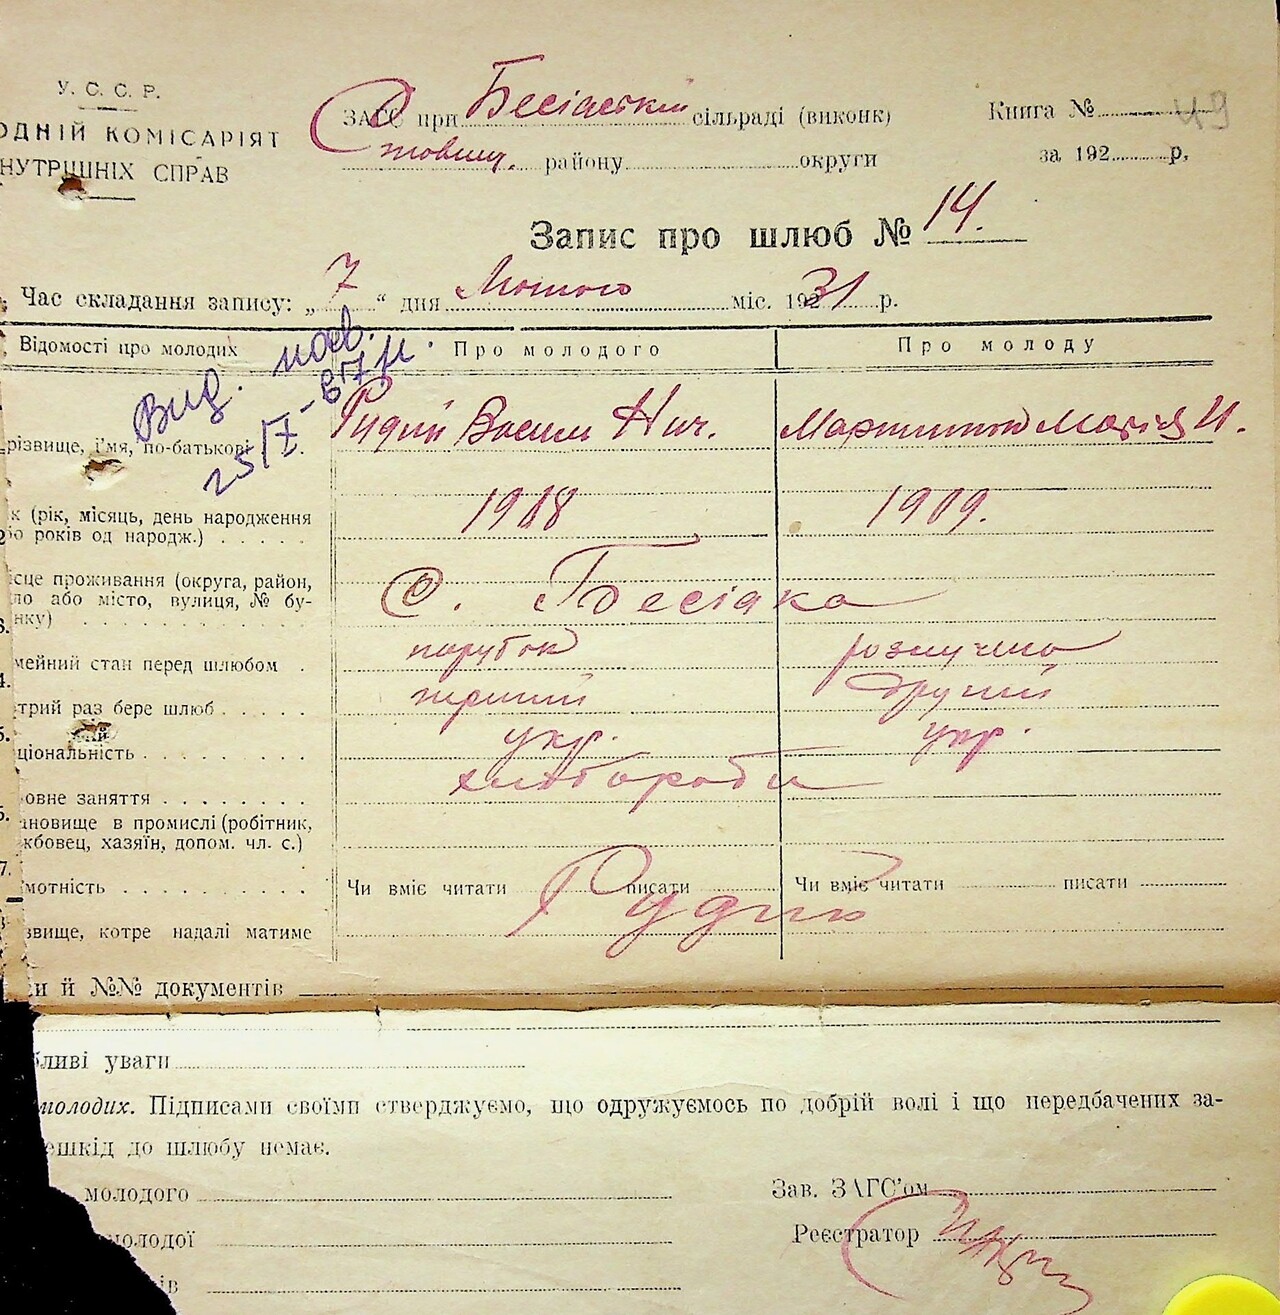 У. С. С. Р.
ОДНІЙ КОМІСАРІЯТ
НУТРІШНІХ СПРАВ
ЗАГС при Бесідській сільраді (виконк)
району округи
Книга № 49
за 192 р.
Запис про шлюб № 14.
Час складання запису: „7“ дня Лютого міс. 1931 р.
Відомості про молодих
Про молодого
Про молоду
Вид. пов.
різвище, і'мя, по-батькові
Рудий Василь Нич.
Мартинюк Марія И.
к (рік, місяць, день народження
бо років од народж.)
1908
1909.
ісце проживання (округа, район,
ло або місто, вулиця, № бу-
нку)
С. Бесідка
мейний стан перед шлюбом
парубок
розлучена
трий раз бере шлюб
перший
другий
ціональність
укр.
укр.
овне заняття
хлібороби
ановище в промислі (робітник,
жбовец, хазяїн, допом. чл. с.)
мотність
Чи вміє читати писати
Чи вміє читати писати
звище, котре надалі матиме
и й №№ документів
бливі уваги
молодих. Підписами своїми стверджуємо, що одружуємось по добрій волі і що передбачених за-
ешкід до шлюбу немає.
молодого
Зав. ЗАГС'ом
молодої
Реєстратор
ів